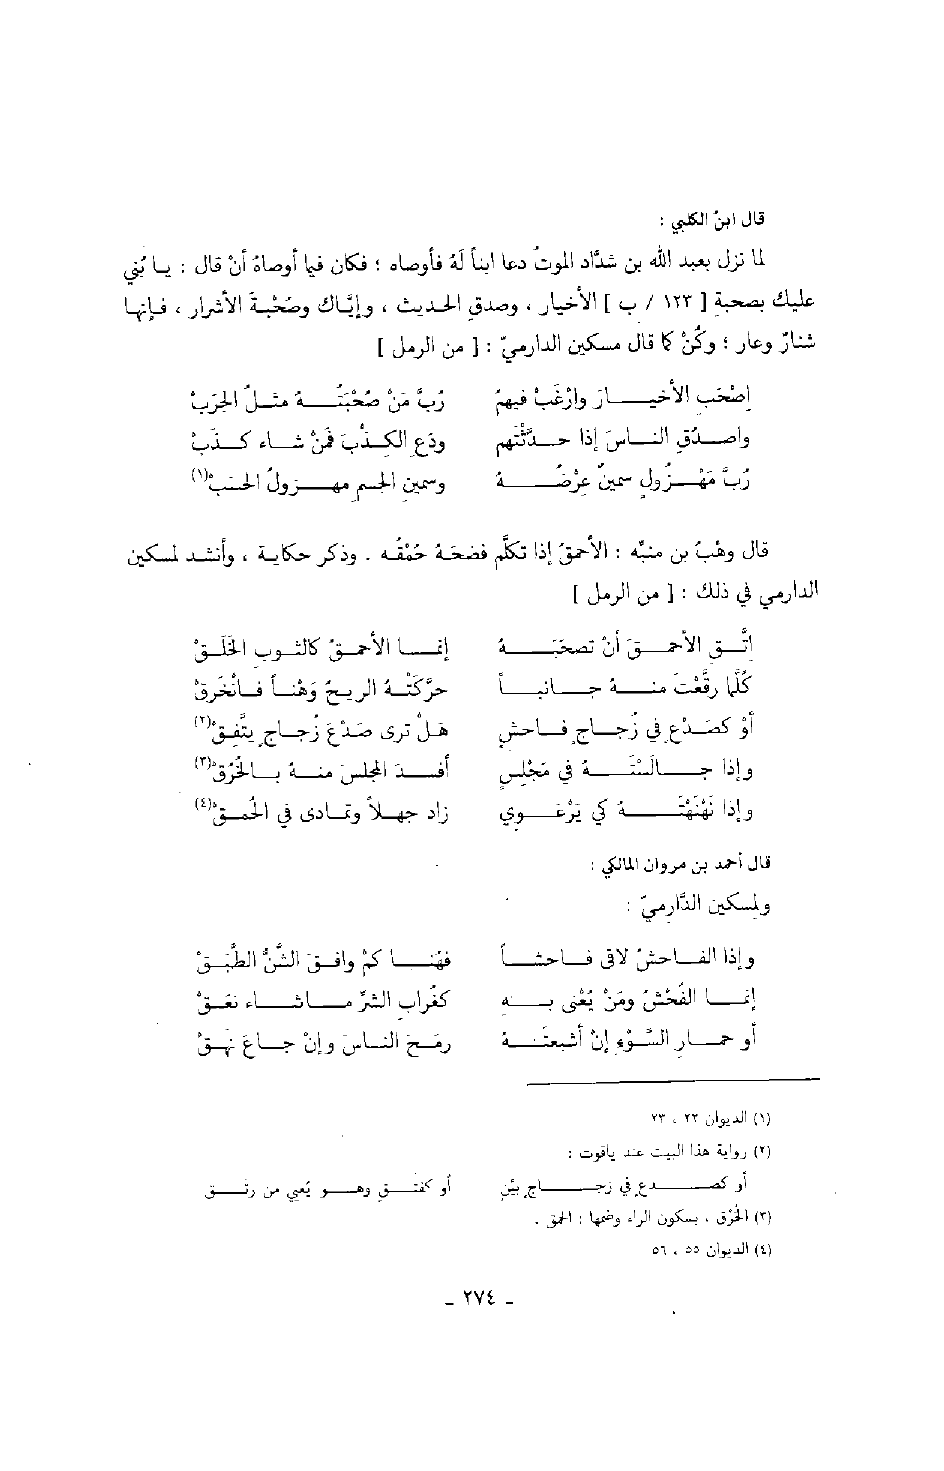 قال ابنُ الكلبي :
لما نزل بعبد الله بن شدَّاد الموتُ دعا ابناً لَهُ فأوصاه ؛ فكان فيما أوصاهُ أنْ قال : يا بُني
عليك بصحبةِ [ ١٢٣ / ب ] الأخيار ، وصدقِ الحديث ، وإيَّاك وصُحْبَةَ الأشرار ، فإنها
شنارٌ وعار ؛ وكُنْ كما قال مسكين الدارميّ : [ من الرمل ]
إصْحَبِ الأخيارَ وارْغَبْ فيهمُ    رُبَّ مَنْ صُحْبَتُهُ مثلُ الجَرَبْ
واصدُقِ الناسَ إذا حدَّثْتَهم    ودَعِ الكذْبَ فمَنْ شاء كذَبْ
رُبَّ مَهْزُولٍ سمينٌ عِرْضُهُ    وسمينِ الجسمِ مهزولُ الحسَبْ(١)
قال وهْبُ بن منبِّه : الأحمقُ إذا تكلَّم فضحَهُ حُمْقُه . وذكر حكاية ، وأنشد لمسكين
الدارمي في ذلك : [ من الرمل ]
اتَّقِ الأحمقَ أنْ تصحَبَهُ    إنما الأحمقُ كالثوبِ الخَلَقْ
كُلَّما رقَّعْتَ منهُ جانباً    حرَّكَتْهُ الريحُ وَهْناً فانْخَرقْ
أوْ كصَدْعٍ في زُجاجٍ فاحشٍ    هلْ ترى صَدْعَ زُجاجٍ يتَّفِقْ(٢)
وإذا جالسْتَهُ في مَجْلِسٍ    أفسدَ المجلسَ منهُ بالخُرُقْ(٣)
وإذا نَهْنَهْتَهُ كي يَرْعَوي    زاد جهلاً وتمادى في الحُمقْ(٤)
قال أحمد بن مروان المالكي :
ولمسكين الدَّارِميّ :
وإذا الفاحشُ لاقى فاحشاً    فهُنا كمْ وافقَ الشَّنُّ الطَّبَقْ
إنما الفُحْشُ ومَنْ يُعْنى بهِ    كغُرابِ الشرِّ ماشاء نعَقْ
أو حمارِ السَّوْءِ إنْ أشبعتَهُ    رمَحَ الناسَ وإنْ جاعَ نَهَقْ
(١) الديوان ٢٢ ، ٢٣
(٢) رواية هذا البيت عند ياقوت :
أو كصدعٍ في زجاجٍ بيّنٍ    أو كفتقٍ وهو يُعي من رتق
(٣) الخُرْق ، بسكون الراء وضمها : الحمق .
(٤) الديوان ٥٥ ، ٥٦
- ٢٧٤ -